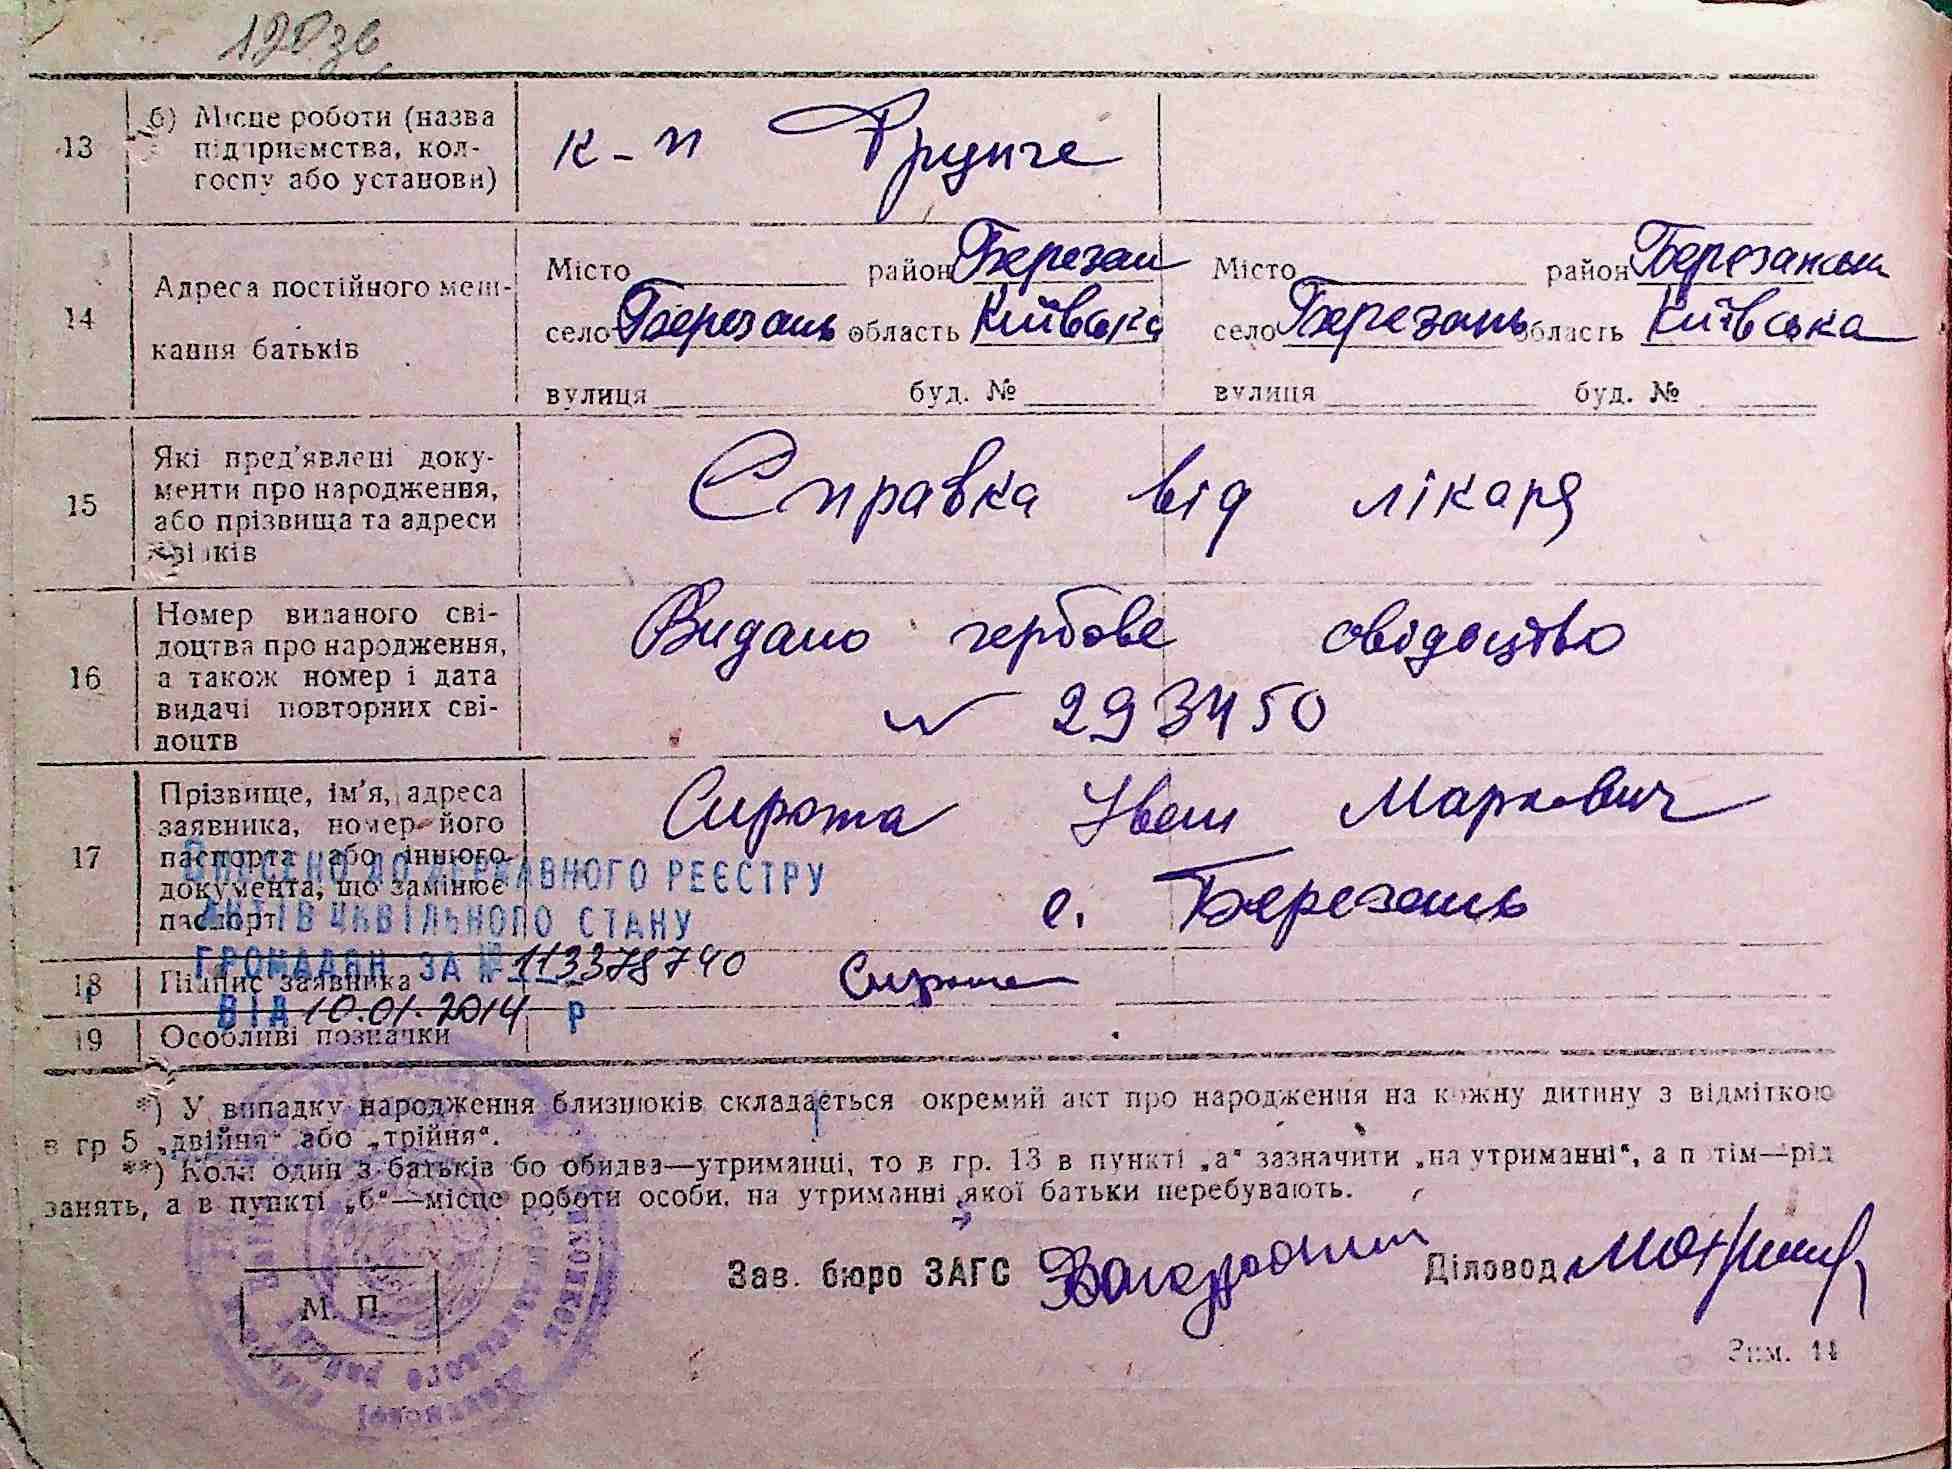 120 зв
13
б) Місце роботи (назва
підприємства, кол-
госпу або установи)
к-п Фрунзе
14
Адреса постійного меш-
кання батьків
Місто район Березан
село Березань область Київська
вулиця буд. №
Місто район Березанськ
село Березань область Київська
вулиця буд. №
15
Які пред'явлені доку-
менти про народження,
або прізвища та адреси
свідків
Справка від лікаря
16
Номер виданого сві-
доцтва про народження,
а також номер і дата
видачі повторних сві-
доцтв
Видано гербове свідоцтво
№ 293450
17
Прізвище, ім'я, адреса
заявника, номер його
паспорта або іншого
документа, що замінює
паспорт
Сирота Іван Маркович
с. Березань
ВНЕСЕНО ДО ДЕРЖАВНОГО РЕЄСТРУ
АКТІВ ЦИВІЛЬНОГО СТАНУ
ГРОМАДЯН ЗА № 113378740
ВІД 10.01.2014 р
18
Підпис заявника
Сирота
19
Особливі позначки
*) У випадку народження близнюків складається окремий акт про народження на кожну дитину з відміткою
в гр 5 „двійня“ або „трійня“.
**) Коли один з батьків бо обидва—утриманці, то в гр. 13 в пункті „а“ зазначити „на утриманні“, а потім—рід
занять, а в пункті „б“—місце роботи особи, на утриманні якої батьки перебувають.
Зав. бюро ЗАГС
Діловод
М. П.
Зам. 14